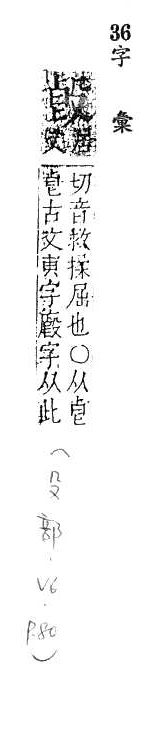 36
字彙
切音救揉屈也〇从皀
皀古文叀字廏字从此
(殳部.V6.
P.80)